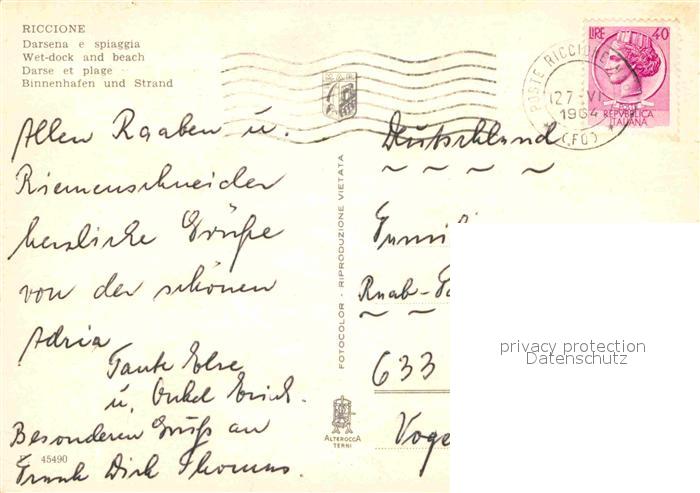 RICCIONE
Darsena e spiaggia
Wet-dock and beach
Darse et plage
Binnenhafen und Strand
LIRE 40
REPVBBLICA
ITALIANA
POSTE RICCIONE
27 -VI
1964
(FO)
Allen Raaben u.
Riemenschneider
herzliche Grüße
von der schönen
Adria
Tante Else
u. Onkel Erich.
Besonderen Gruß an
Frank Dirk Thomas.
45490
FOTOCOLOR - RIPRODUZIONE VIETATA
ALTEROCCA
TERNI
Deutschland
Famili
Raab-
633
Voge
privacy protection
Datenschutz